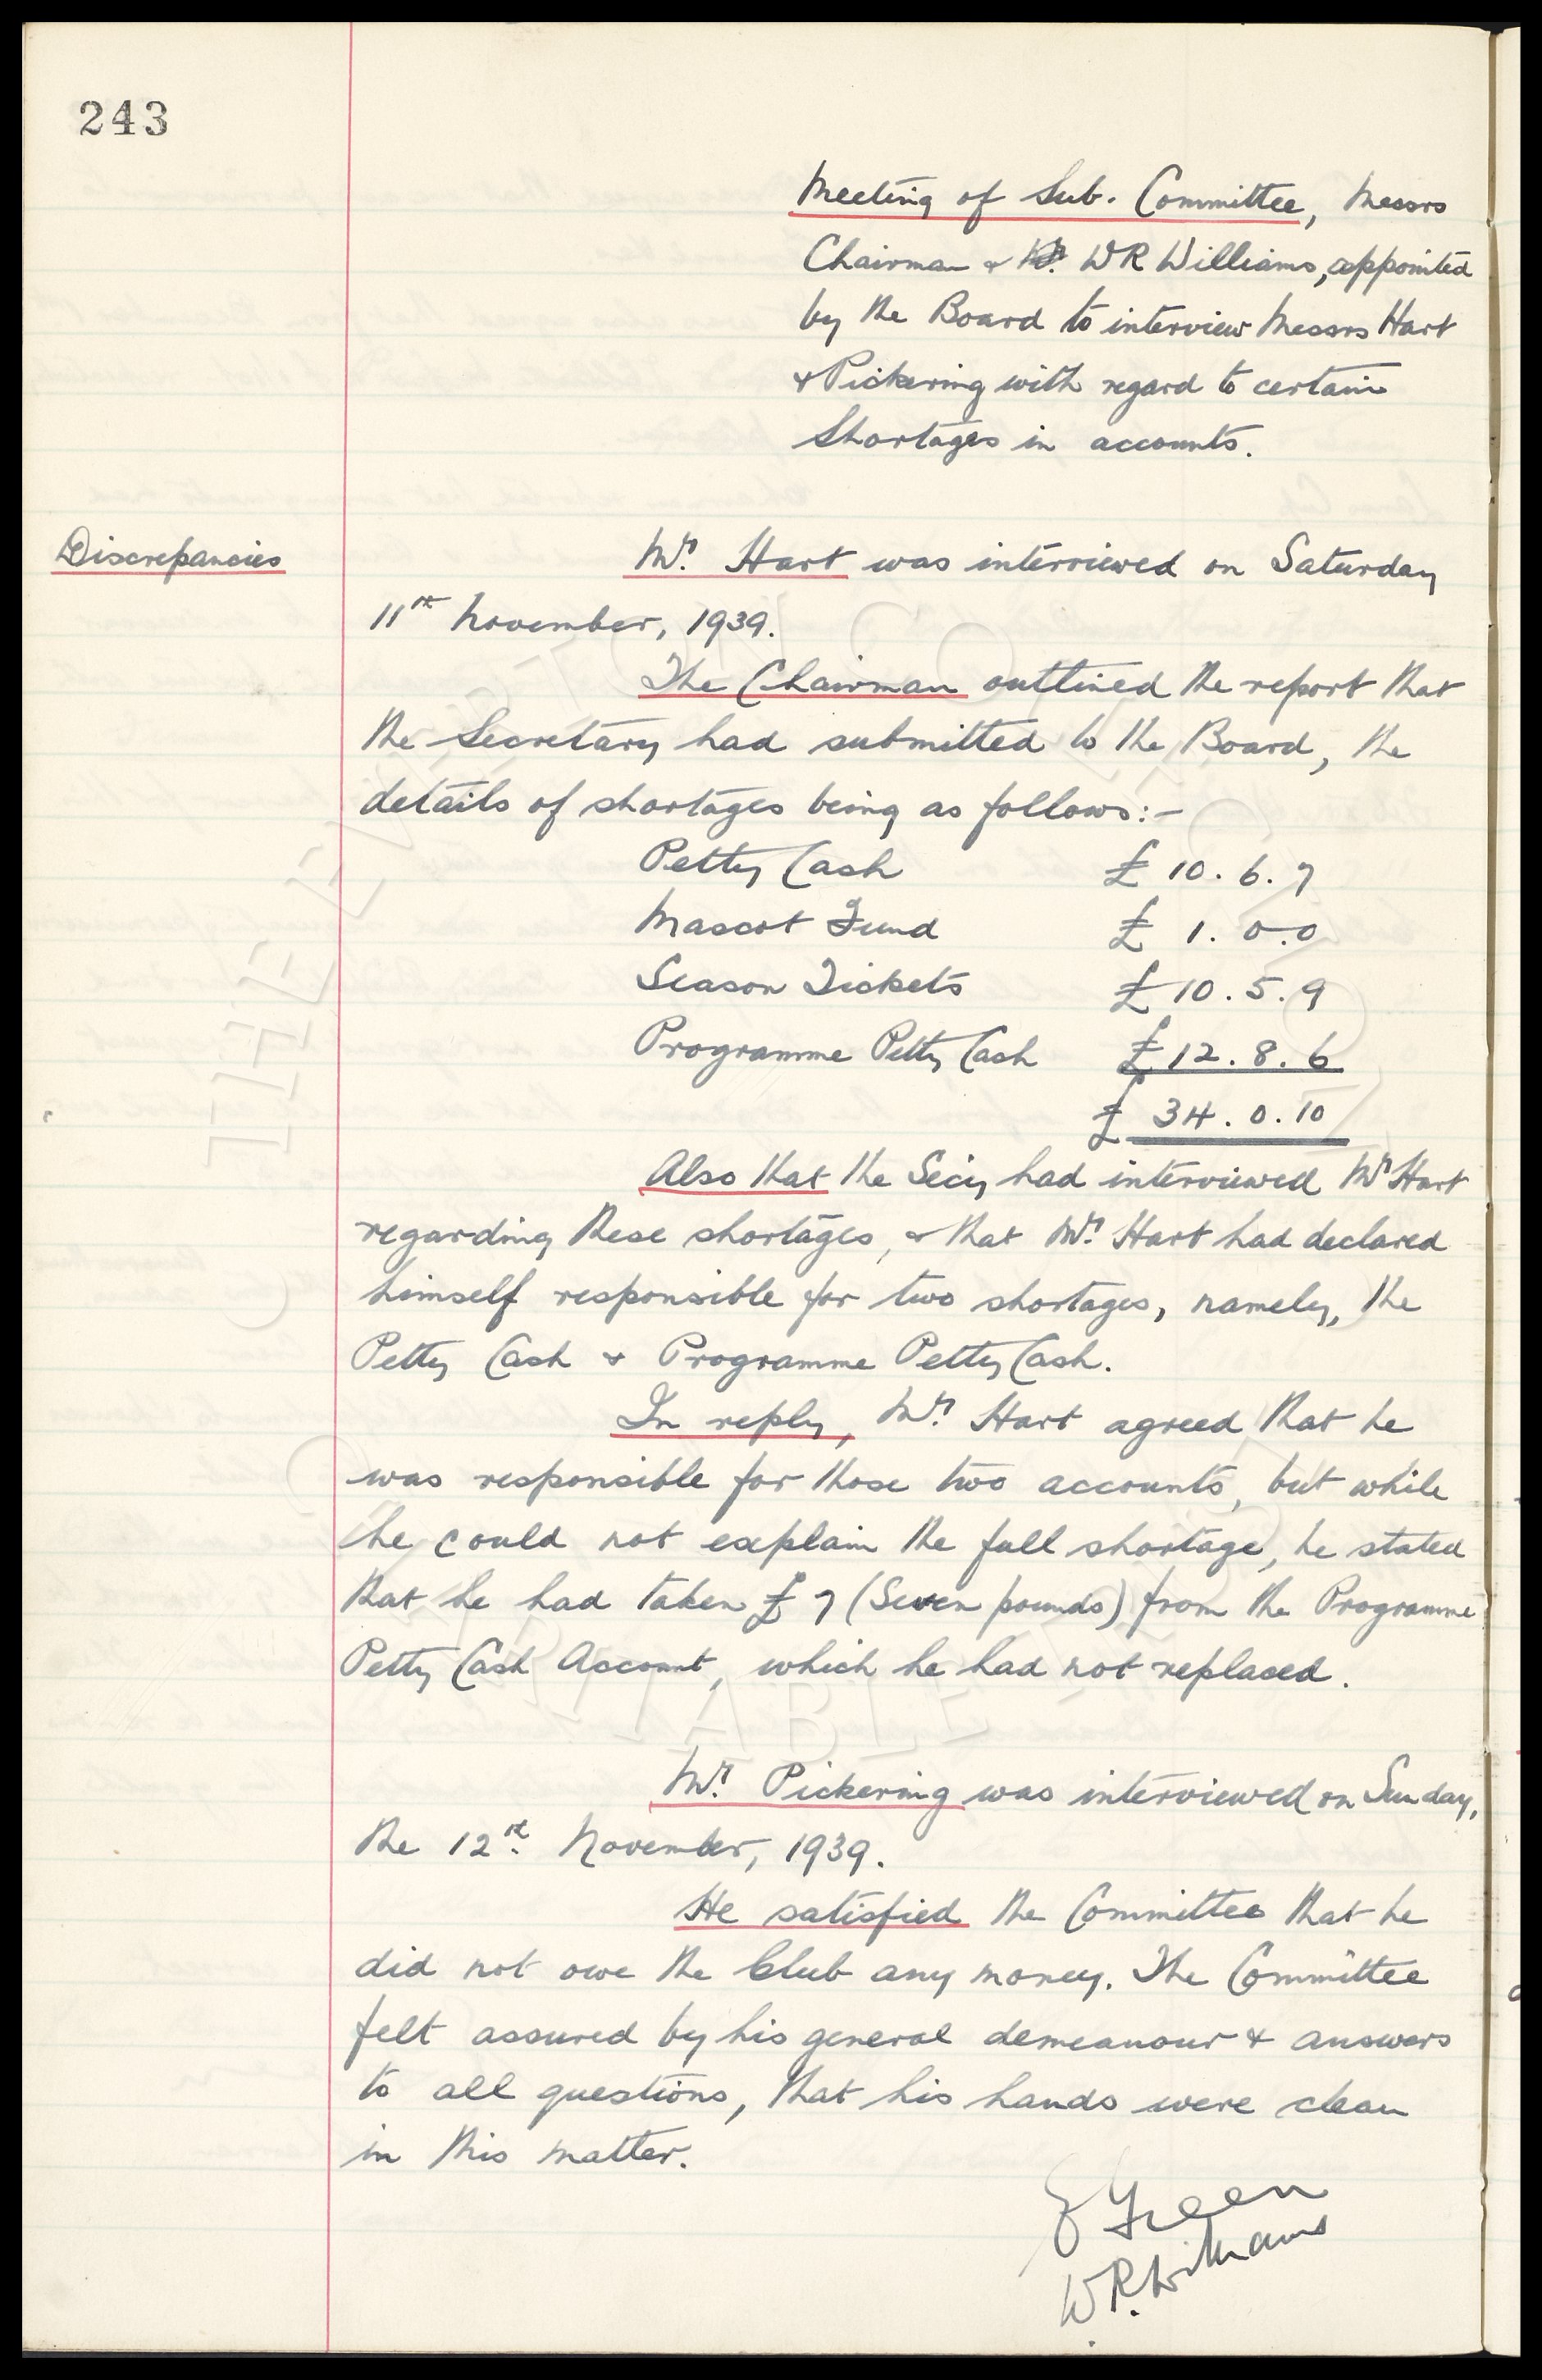 243
Meeting of Sub. Committee, Messrs
Chairman & W R Williams, appointed
by the Board to interview Messrs Hart
& Pickering with regard to certain
Shortages in accounts.
Discrepancies
Mr. Hart was interviewed on Saturday
11th November, 1939.
The Chairman outlined the report that
the Secretary had submitted to the Board, the
details of shortages being as follows:-
Petty Cash £ 10. 6. 7
Mascot Fund £ 1. 0. 0
Season Tickets £ 10. 5. 9
Programme Petty Cash £ 12. 8. 6
£ 34. 0. 10
Also that the Secy had interviewed Mr Hart
regarding these shortages, & that Mr. Hart had declared
himself responsible for two shortages, namely, the
Petty Cash & Programme Petty Cash.
In reply, Mr. Hart agreed that he
was responsible for those two accounts, but while
he could not explain the full shortage, he stated
that he had taken £ 7 (Seven pounds) from the Programme
Petty Cash Account, which he had not replaced.
Mr. Pickering was interviewed on Sunday,
the 12th. November, 1939.
He satisfied the Committee that he
did not owe the Club any money. The Committee
felt assured by his general demeanour & answers
to all questions, that his hands were clean
in this matter.
Green
W R. Williams